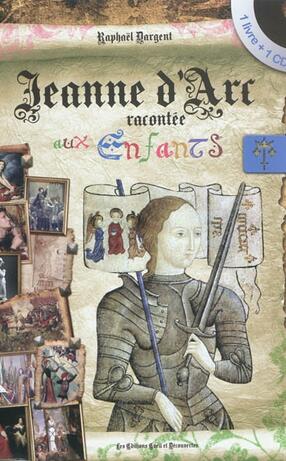 Raphaël Dargent
1 livre + 1 CD
Jeanne d'Arc
racontée
aux Enfants
Les Editions Cœli et Découvertes